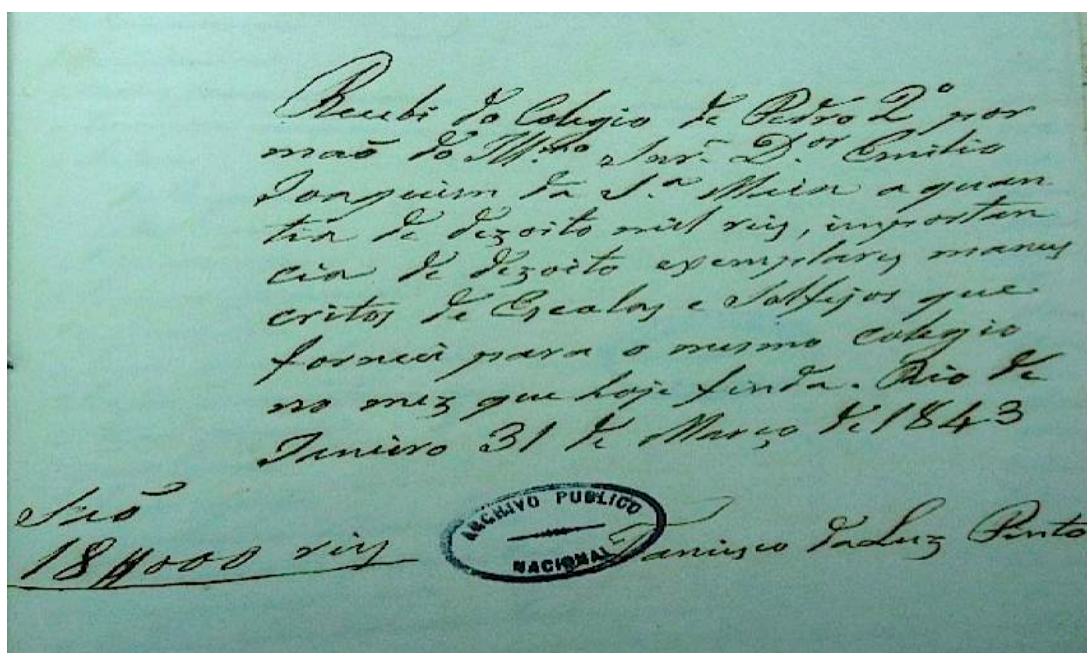 Recebi do Colegio de Pedro 2º por
maõ do Ill.mo Snr. D.or Emilio
Joaquim da S.a Maia a quan
tia de dezoito mil reis, importan
cia de dezoito exemplares manus
critos de Escalas e Solfejos que
forneci para o mesmo colegio
no mez que hoje finda. Rio de
Janeiro 31 de Março de 1843
Saõ
18$000 reis
ARCHIVO PUBLICO
NACIONAL
Francisco da Luz Pinto